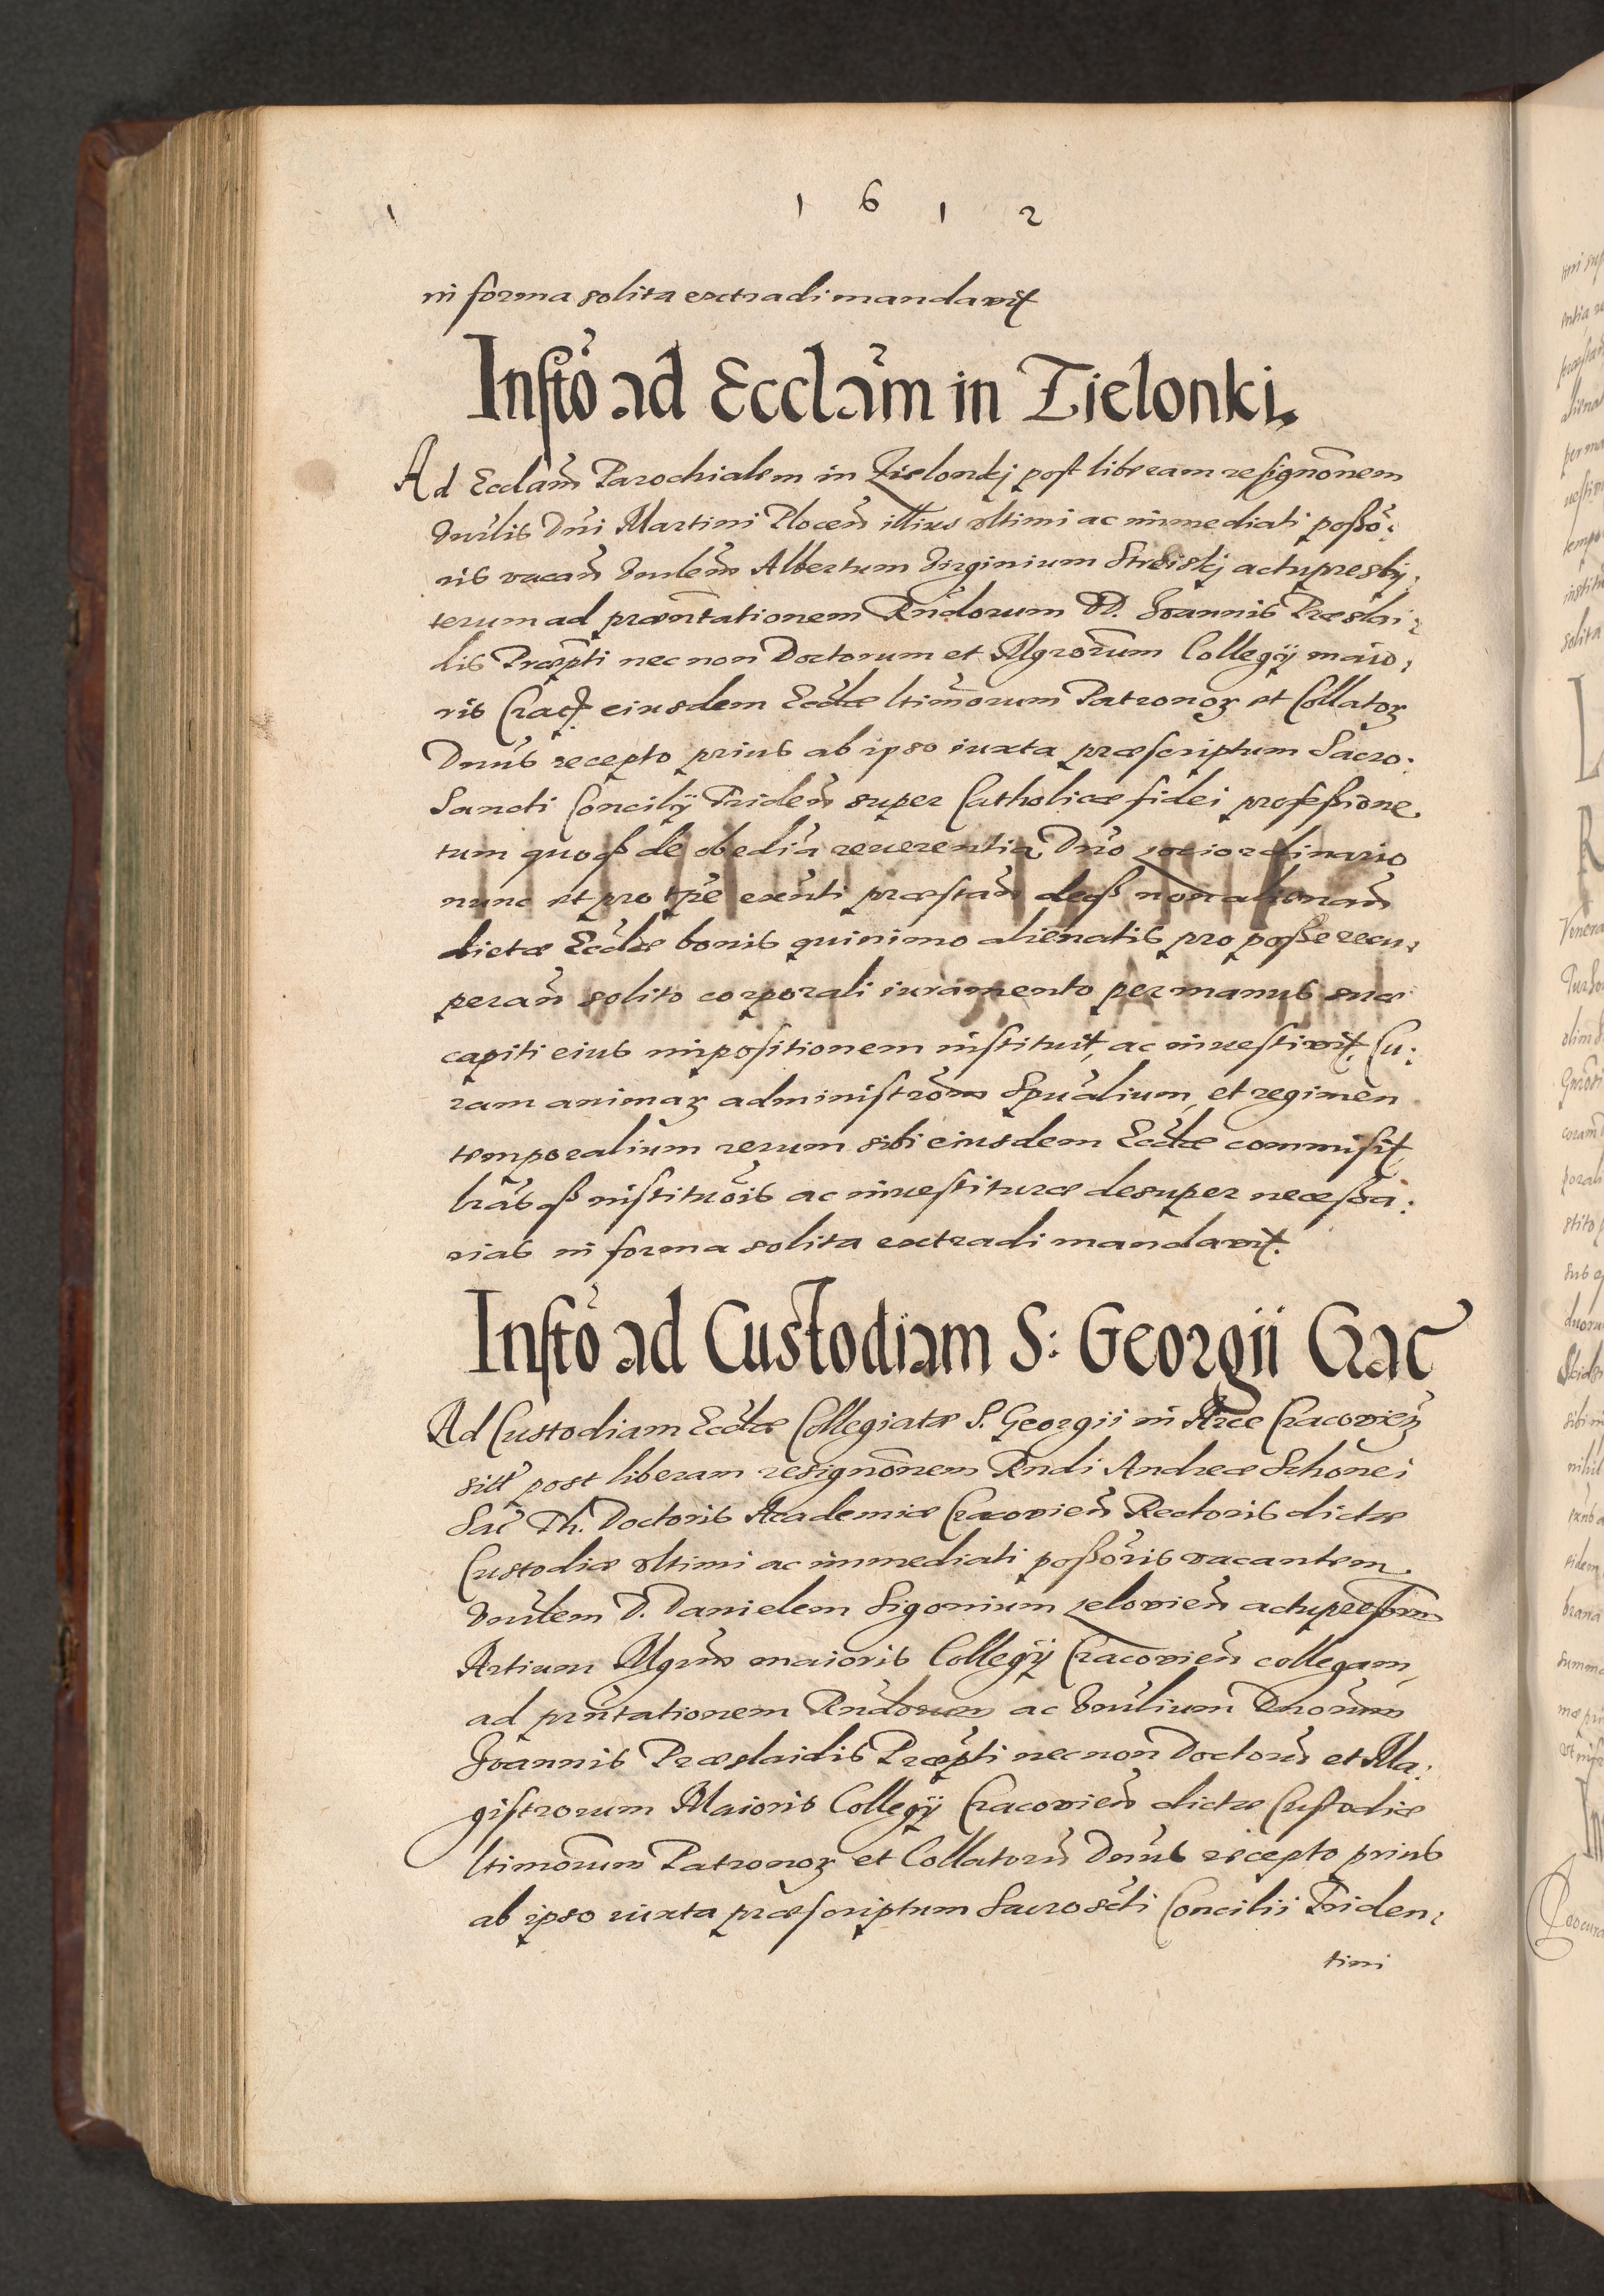 1 6 1 2
in forma solita extradi mandavit
Insto ad Ecclam in Zielonki
Ad Ecclam Parochialem in Zielonkj post liberam resignonem
Dni Martini Plocen illius ultimi ac immediati posso:
ris vacan Albertum Virginium actu presby,
terum ad præntationem Rndorum DD. Joannis Præslai:
dis Præpti nec non Doctorum et Mgrorum Collegij maio,
ris Crac eiusdem Ecclæ ltimorum Patronoꝝ et Collatoꝝ
Dnus recepto prius ab ipso iuxta præscriptum Sacro:
Sancti Concilij Triden super Catholicæ fidei professione
tum quoqꝫ de obedia reverentia Dno loci ordinario
nunc et pro tpre exnti præstan deqꝫ non alienan
dictæ Ecclæ bonis quinimo alienatis pro posse recu,
peran solito corporali iuramento per manus suæ
capiti eius impositionem instituit, ac investivit, Cu:
ram animaꝝ administrom Spualium, et regimen
temporalium rerum sibi eiusdem Ecclæ commisit,
lrasqꝫ instituois ac investituræ desuper necessa:
rias in forma solita extradi mandavit.
Insto ad Custodiam S: Georgii Crac
Ad Custodiam Ecclæ Collegiatæ S. Georgii in Arce Cracovien
sitt post liberam resignonem Rndi Andreæ Schonei
Sac Th. Doctoris Academiæ Cracovien Rectoris dictæ
Custodiæ ultimi ac immediati possoris vacantem
D. Danielem Sigonium Lelovien actu presbrm
Artium Mgrm maioris Collegij Cracovien collegam,
ad prntationem Rndorum ac Vnlium Dnorum
Joannis Præslaidis Præpti nec non Doctoru et Ma:
gistrorum Maioris Collegij Cracovien dictæ Custodiæ
ltimorum Patronoꝝ et Collatoru Dnus recepto prius
ab ipso iuxta præscriptum Sacroscti Concilii Triden:
tini